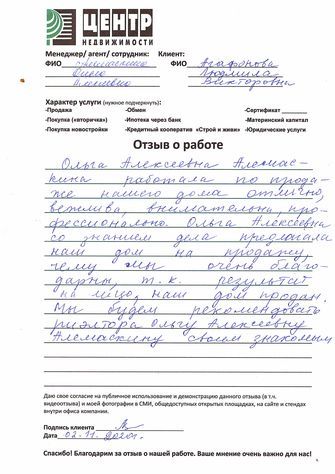 ЦЕНТР
НЕДВИЖИМОСТИ
Менеджер/ агент/ сотрудник: Клиент:
ФИО Алемаскина ФИО Агафонова
Ольга Людмила
Алексеевна Викторовна
Характер услуги (нужное подчеркнуть):
-Продажа -Обмен -Сертификат
-Покупка («вторичка») -Ипотека через банк -Материнский капитал
-Покупка новостройки -Кредитный кооператив «Строй и живи» -Юридические услуги
Отзыв о работе
Ольга Алексеевна Алемас-
кина работала по прода-
же нашего дома отлично,
вежлива, внимательна, про-
фессиональна. Ольга Алексеевна
со знанием дела предлагала
наш дом на продажу,
чему мы очень благо-
дарны, т.к. результат
на лицо, наш дом продан.
Мы будем рекомендовать
риэлтора Ольгу Алексеевну
Алемаскину своим знакомым
Даю свое согласие на публичное использование и демонстрацию данного отзыва (в т.ч.
видеоотзыва) и моей фотографии в СМИ, общедоступных открытых площадках, на сайте и стендах
внутри офиса компании.
Подпись клиента
Дата 02.11.2020г.
Спасибо! Благодарим за отзыв о нашей работе. Ваше мнение очень важно для нас!